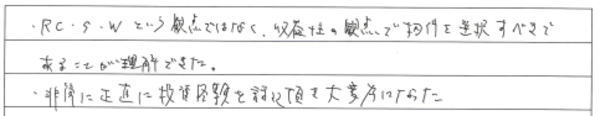 ・RC・S・Wという観点ではなく、収益性の観点で物件を選択すべきで
あることが理解できた。
・非常に正直に投資経験を話して頂き大変参考になった